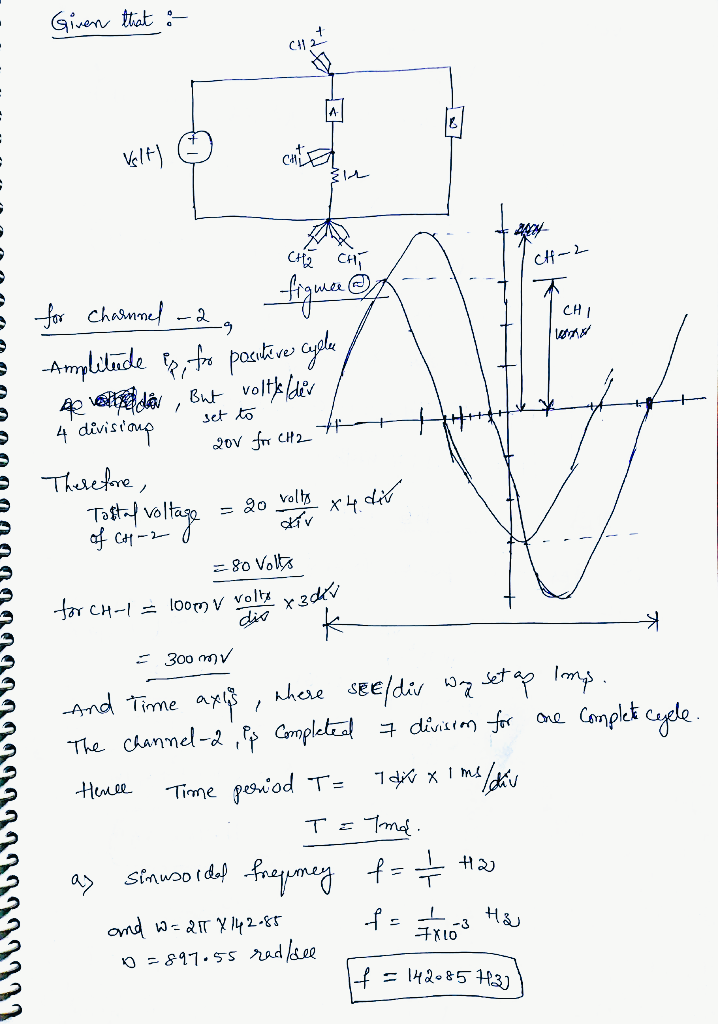 Given that :-
CH2+
A
B
Vs(t)
+
-
CH1+
1Ω
CH2- CH1-
figure (a)
CH-2
CH1
for channel - 2,
Amplitude is, for positive cycle
4 divisions, But volts/div
set to
20V for CH2
Therefore,
Total voltage
of CH-2
= 20 volts/div × 4 div
= 80 Volts
for CH-1 = 100mV volts/div × 3 div
= 300 mV
And Time axis, where SEC/div was set as 1ms.
The channel-2, is completed 7 division for one complete cycle.
Hence Time period T = 7 div × 1 ms/div
T = 7ms.
a) sinusoidal frequency f = 1/T Hz
and W = 2π × 142.85
f = 1/7×10-3 Hz
ω = 897.55 rad/sec
f = 142.85 Hz